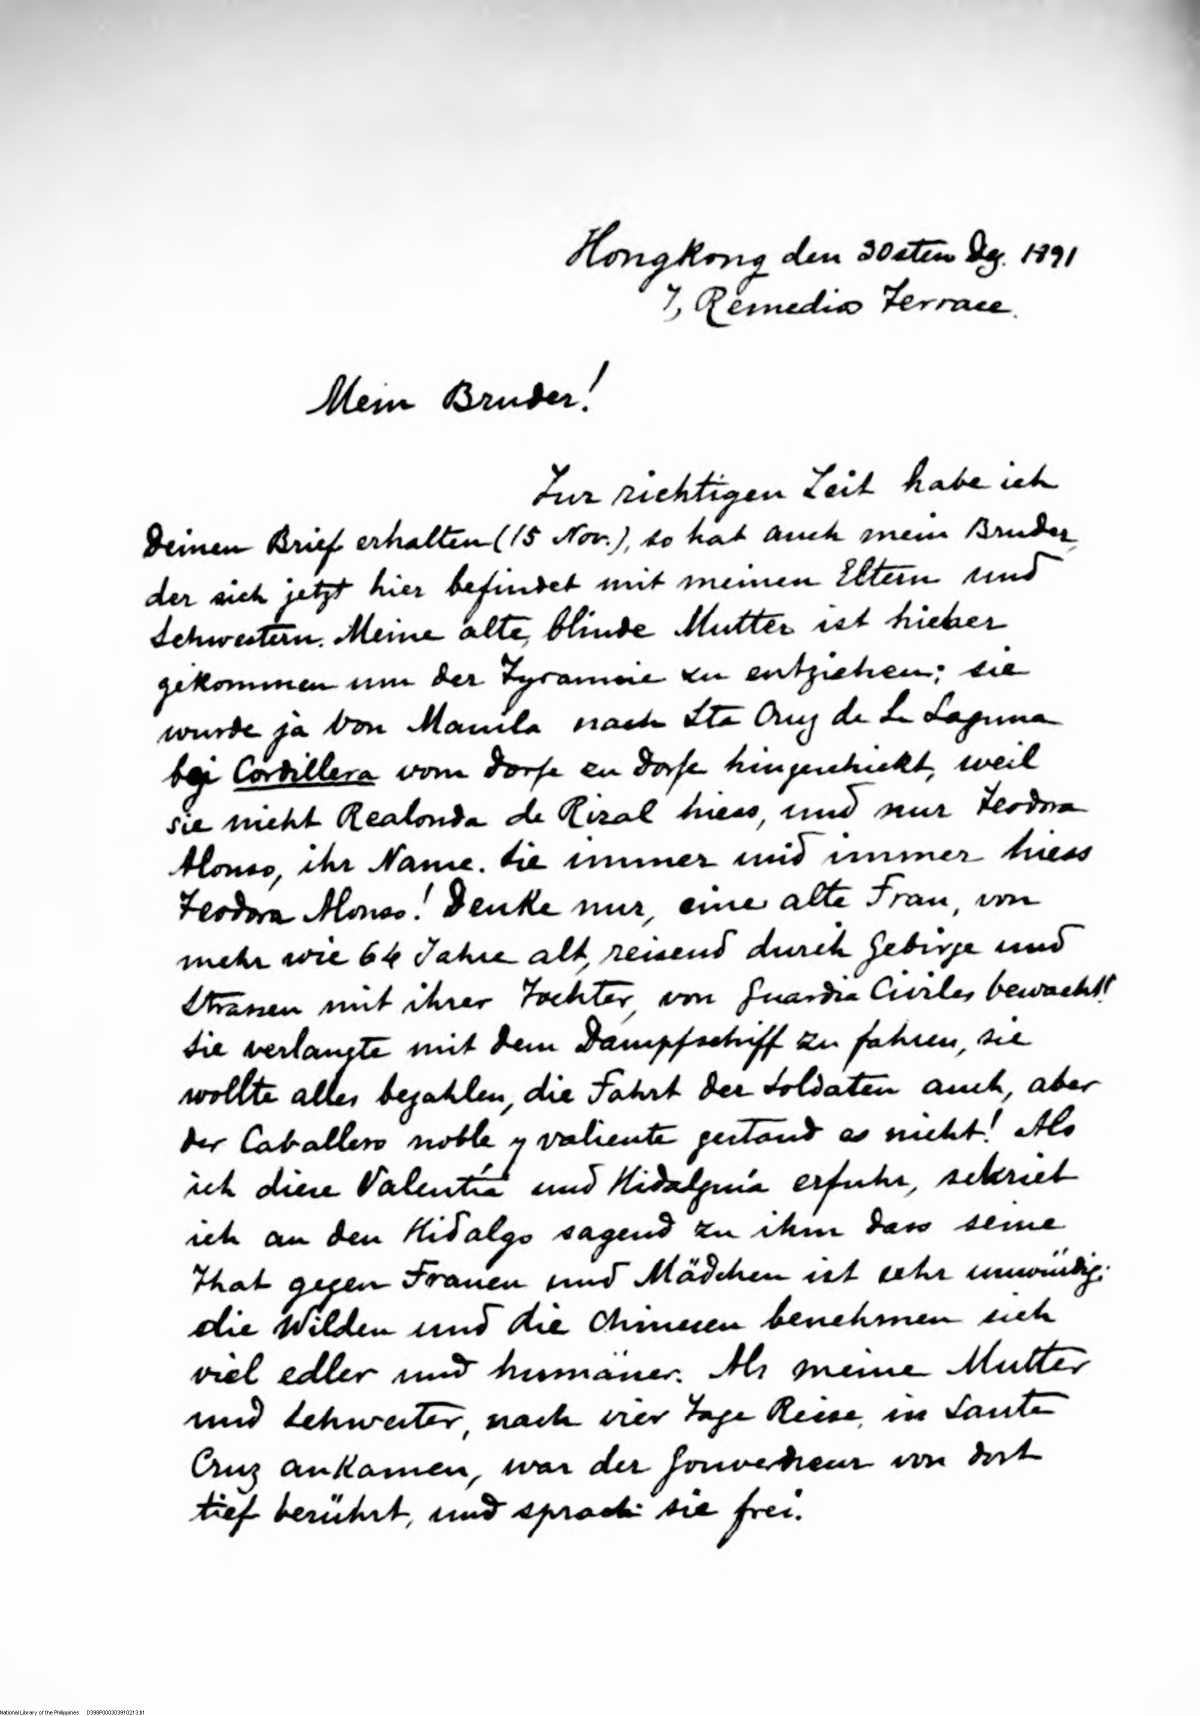 Hongkong den 30sten Dez. 1891
7, Remedios Terrace.
Mein Bruder!
Zur richtigen Zeit habe ich
Deinen Brief erhalten (15 Nov.), so hat auch mein Bruder,
der sich jetzt hier befindet mit meinen Eltern und
Schwestern. Meine alte, blinde Mutter ist hieher
gekommen um der Tyrannie zu entziehen; sie
wurde ja von Manila nach Sta Cruz de La Laguna
bei Cordillera vom Dorfe zu Dorfe hingeschickt, weil
sie nicht Realonda de Rizal hiess, und nur Teodora
Alonso, ihr Name. Sie immer und immer hiess
Teodora Alonso! Denke nur, eine alte Frau, von
mehr wie 64 Jahre alt, reisend durch Gebirge und
Strassen mit ihrer Tochter, von Guardia Civiles bewacht!
Sie verlangte mit dem Dampfschiff zu fahren, sie
wollte alles bezahlen, die Fahrt der Soldaten auch, aber
der Caballero noble y valiente gestand es nicht! Als
ich diese Valentía und Hidalguía erfuhr, schrieb
ich an den Hidalgo sagend zu ihm dass seine
That gegen Frauen und Mädchen ist sehr unwürdig;
die Wilden und die Chinesen benehmen sich
viel edler und humäner. Als meine Mutter
und Schwester, nach vier Tage Reise, in Santa
Cruz ankamen, war der Gouverneur von dort
tief berührt, und sprach sie frei.
National Library of the Philippines D398P000303910213.tif